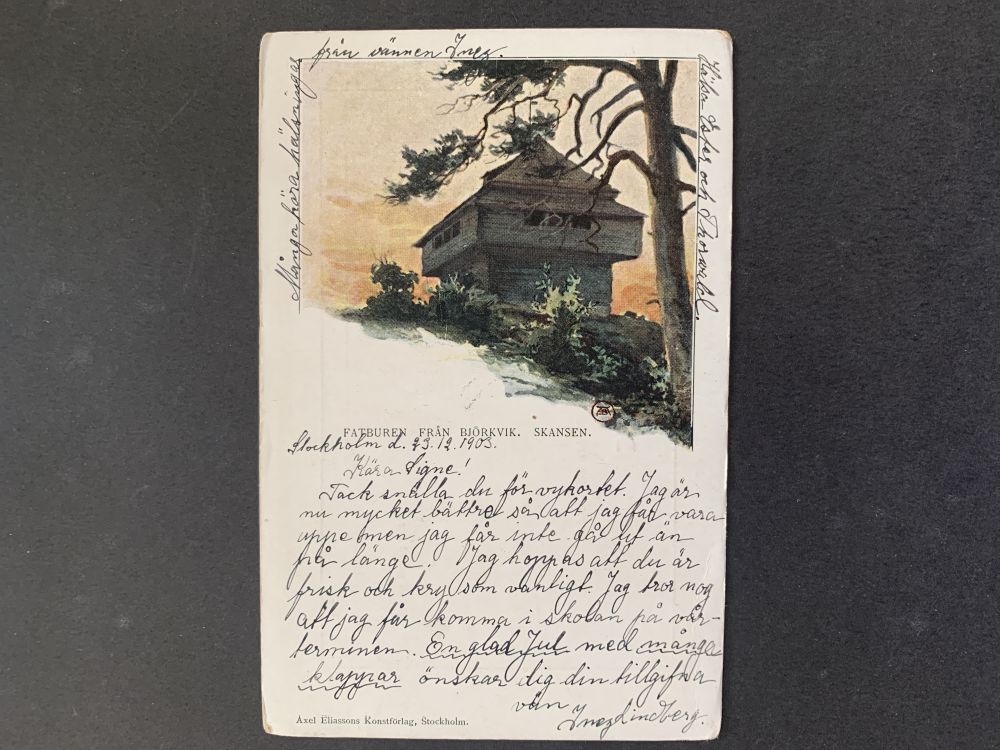 från vännen Inez.
Många kära hälsningar
Hälsa Ester och Thorvald.
FATBUREN FRÅN BJÖRKVIK. SKANSEN.
Stockholm d. 23.12.1903.
Kära Signe!
Tack snälla du för vykortet. Jag är
nu mycket bättre så att jag får vara
uppe men jag får inte gå ut än
på länge. Jag hoppas att du är
frisk och kry som vanligt. Jag tror nog
att jag får komma i skolan på vår-
terminen. En glad Jul med många
klappar önskar dig din tillgifna
vän Inez Lindberg.
Axel Eliassons Konstförlag, Stockholm.